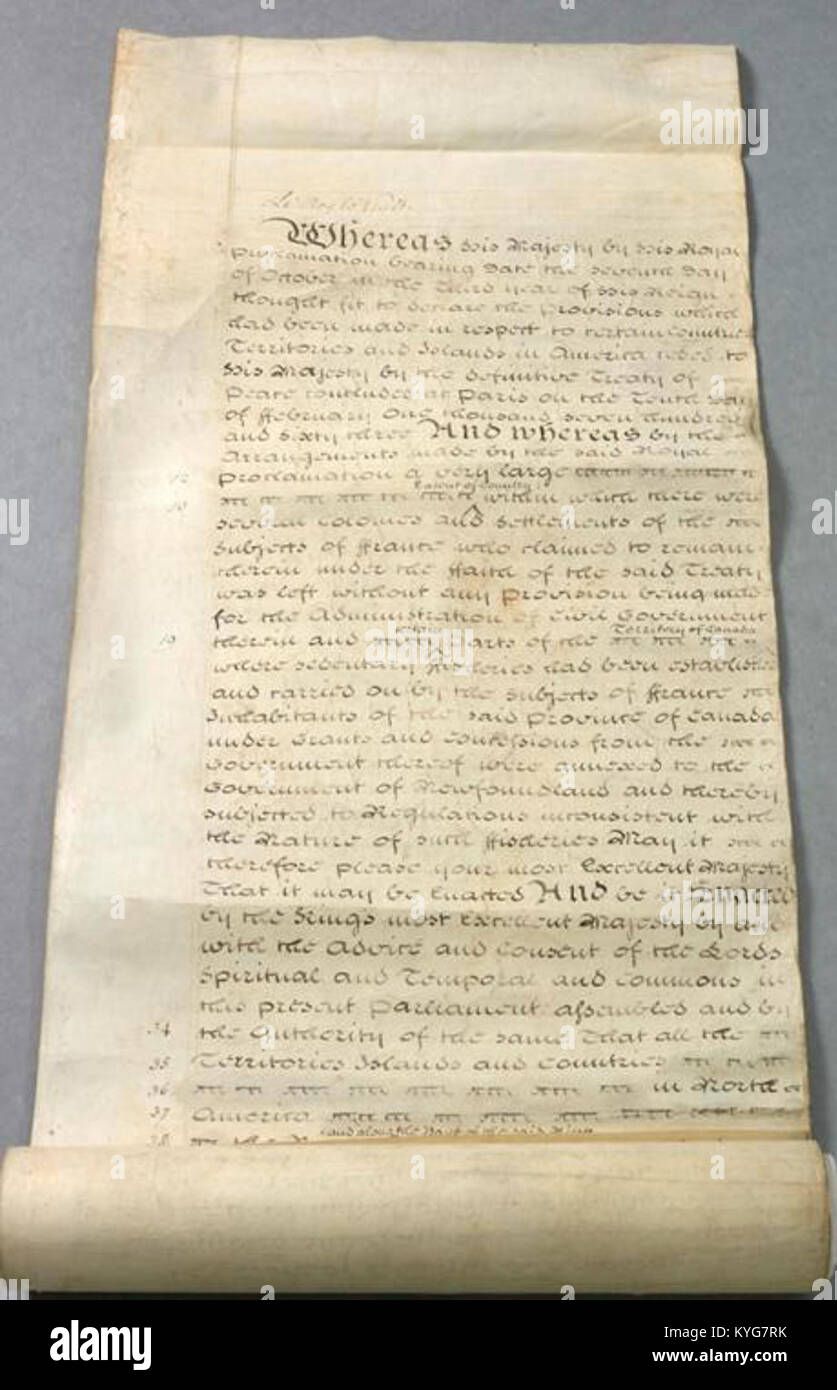 Le Roy le Veult
Whereas His Majesty by His Royal
Proclamation bearing Date the Seventh Day
of October in the Third Year of His Reign
thought fit to declare the Provisions which
had been made in respect to certain Countries
Territories and Islands in America ceded to
His Majesty by the definitive Treaty of
Peace concluded at Paris on the Tenth Day
of ffebruary One thousand seven hundred
and sixty three And whereas by the
Arrangements made by the said Royal
12 Proclamation a very large
Extent of Country
13 within which there were
several Colonies and Settlements of the
Subjects of ffrance who claimed to remain
therein under the ffaith of the said Treaty
was left without any Provision being made
for the Administration of Civil Government
Territory of Canada
19 therein and Parts of the
where sedentary ffisheries had been established
and carried on by the Subjects of ffrance
Inhabitants of the said Province of Canada
under Grants and Concessions from the
Government thereof were annexed to the
Government of Newfoundland and thereby
subjected to Regulations inconsistent with
the Nature of such ffisheries May it
therefore please your most Excellent Majesty
That it may be Enacted And be it Enacted
by the Kings most Excellent Majesty by and
with the Advice and Consent of the Lords
Spiritual and Temporal and Commons in
this present Parliament assembled and by
34 the Authority of the same That all the
35 Territories Islands and Countries
36 in North
37 America
and along the Bank of the said River
38 the
alamy
Image ID: KYG7RK
www.alamy.com